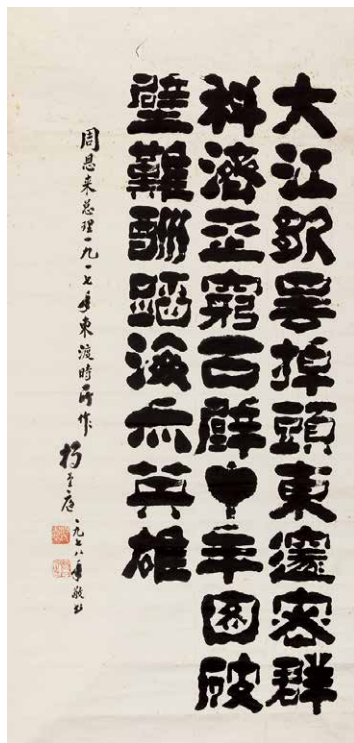 大江歌罷掉頭東邃密群
科濟世窮面壁十年图破
壁難酬蹈海亦英雄
周恩来总理一九一七年東渡時所作
一九七八年敬书